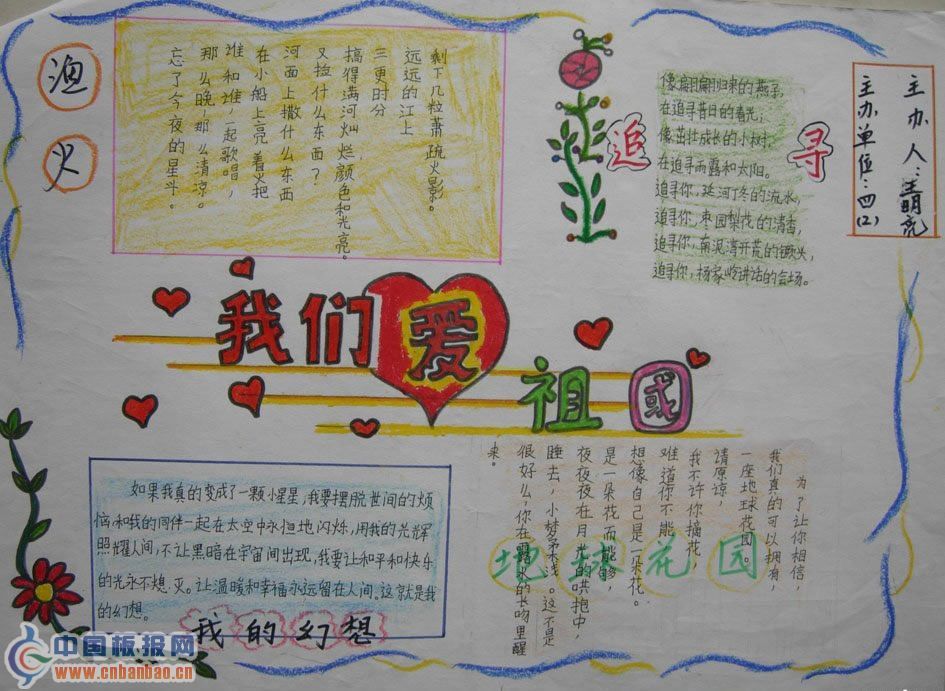 渔火
剩下几粒萧疏火影。
远远的江上
三更时分
搞得满河灿烂,颜色和光亮。
又捡什么东西?
河面上撒什么东西
在小船上亮着火把
谁和谁一起歌唱,
那么晚,那么清凉。
忘了今夜的星斗。
追寻
像翩翩归来的燕子,
在追寻昔日的春光,
像茁壮成长的小树,
在追寻雨露和太阳。
追寻你,延河叮冬的流水,
追寻你,枣园梨花的清香,
追寻你,南泥湾开荒的镢头,
追寻你,杨家岭讲话的会场。
主办人:王明亮
主办单位:四(2)
我们爱祖国
如果我真的变成了一颗小星星,我要摆脱世间的烦
恼,和我的同伴一起在太空中永恒地闪烁,用我的光辉
照耀人间,不让黑暗在宇宙间出现,我要让和平和快乐
的光永不熄灭。让温暖和幸福永远留在人间。这就是我
的幻想。
我的幻想
地球花园
为了让你相信,
我们真的可以拥有,
一座地球花园。
请原谅,
我不许你摘花,
难道你不能,
想像自己是一朵花。
是一朵花而能够,
夜夜夜在月光的哄抱中,
睡去,小梦
这不是
很好么你在露水的长吻里醒
来。
中国板报网
www.cnbanbao.cn